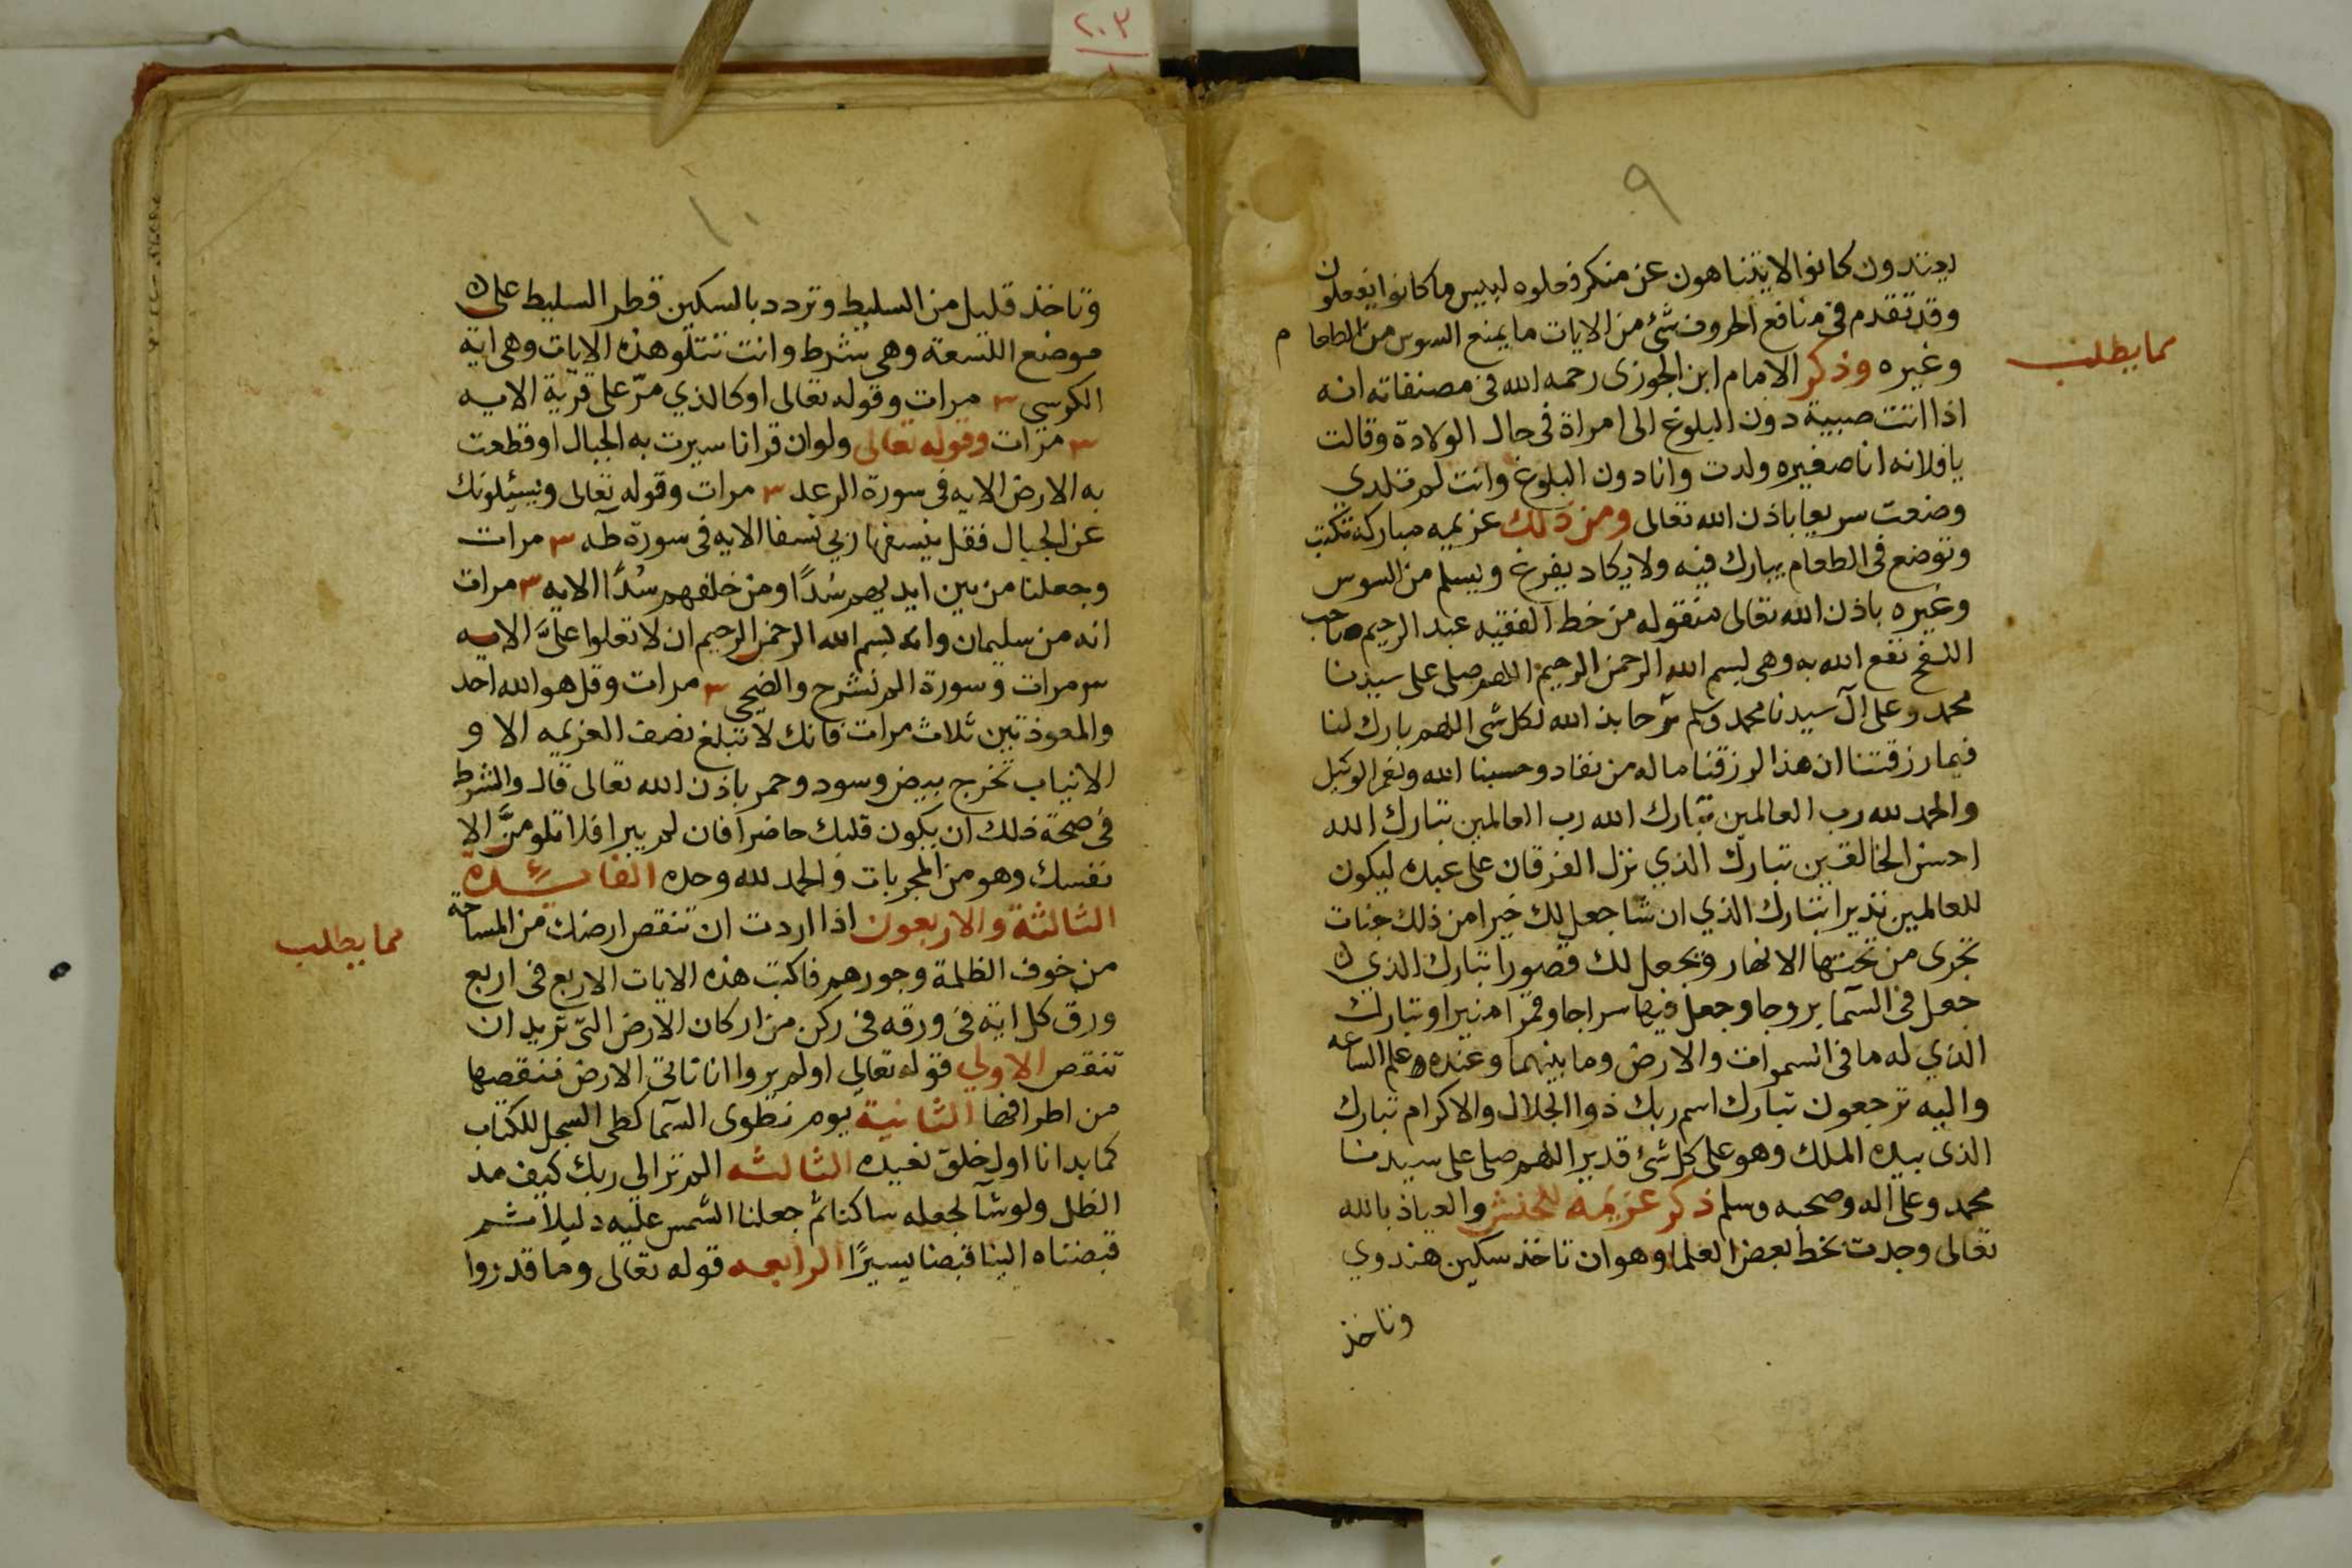 ٢٠٣
٩
يعتدون كانوا لا يتناهون عن منكر فعلوه لبيس ما كانوا يفعلون
وقد تقدم في منافع الحروف شئ من الايات ما يمنع السوس من الطعام
وغيره وذكر الامام ابن الجوزى رحمه الله في مصنفاته انه
مما يطلب
اذا اتت صبية دون البلوغ الى امراة في حال الولادة وقالت
يا فلانه انا صغيره ولدت وانا دون البلوغ وانت لم تلدي
وضعت سريعا باذن الله تعالى ومن ذلك عزيمه مباركة تكتب
وتوضع في الطعام يبارك فيه ولا يكاد يفرغ ويسلم من السوس
وغيره باذن الله تعالى منقوله من خط الفقيه عبد الرحيم صاحب
اللفج نفع الله به وهى بسم الله الرحمن الرحيم اللهم صلى على سيدنا
محمد وعلى آل سيدنا محمد وسلم مرحا بذ الله لكل شى اللهم بارك لنا
فيما رزقتنا ان هذا لرزقنا ماله من نفاد وحسبنا الله ونعم الوكيل
والحمد لله رب العالمين تبارك الله رب العالمين تبارك الله
احسن الخالقين تبارك الذي نزل الفرقان على عبده ليكون
للعالمين نذيرا تبارك الذي ان شا جعل لك خيرا من ذلك جنات
تجرى من تحتها الانهار ويجعل لك قصورا تبارك الذي
جعل في السما بروجا وجعل فيها سراجا وقمرا منيرا وتبارك
الذي له ما في السموات والارض وما بينهما وعنده علم الساعه
واليه ترجعون تبارك اسم ربك ذوا الجلال والاكرام تبارك
الذى بيده الملك وهو على كل شئ قدير اللهم صلى على سيدنا
محمد وعلى اله وصحبه وسلم ذكر عزيمه للحنش والعياذ بالله
تعالى وجدت بخط بعض العلما وهو ان تاخذ سكين هندوي
وتاخذ
١٠
وتاخذ قليل من السليط وتردد بالسكين قطر السليط على
موضع اللسعة وهى بشرط وانت تتلو هذه الايات وهى اية
الكوسى ٣ مرات وقوله تعالى او كالذي مرّ على قرية الايه
٣ مرات وقوله تعالى ولو ان قرانا سيرت به الجبال او قطعت
به الارض الايه في سورة الرعد ٣ مرات وقوله تعالى ويسئلونك
عن الجبال فقل ينسفها ربي نسفا الايه في سورة طه ٣ مرات
وجعلنا من بين ايديهم سُدًا ومن خلفهم سُدًا الايه ٣ مرات
انه من سليمان وانه بسم الله الرحمن الرحيم ان لا تعلوا عليَّ الايه
٣ مرات وسورة الم نشرح والضحى ٣ مرات وقل هو الله احد
والمعوذتين ثلاث مرات فانك لا تبلغ نصف العزيمه الا و
الانياب تخرج بيض وسود وحمر باذن الله تعالى قال والشرط
في صحة ذلك ان يكون قلبك حاضرا فان لم يبرا فلا تلومنَّ الا
نفسك وهو من المجربات والحمد لله وحده الفائدة
الثالثة والاربعون اذا اردت ان تنقص ارضك من المساحة
مما يطلب
من خوف الظلمة وجورهم فاكتب هذه الايات الاربع في اربع
ورق كل اية في ورقه في ركن من اركان الارض التي تريد ان
تنقص الاولي قوله تعالى اولم يروا انا ناتي الارض ننقصها
من اطرافها الثانية يوم نطوى السما كطى السجل للكتاب
كما بدانا اول خلق نعيده الثالثه الم تر الى ربك كيف مد
الظل ولو شا لجعله ساكنا ثم جعلنا الشمس عليه دليلا ثم
قبضناه الينا قبضا يسيرًا الرابعه قوله تعالى وما قدروا